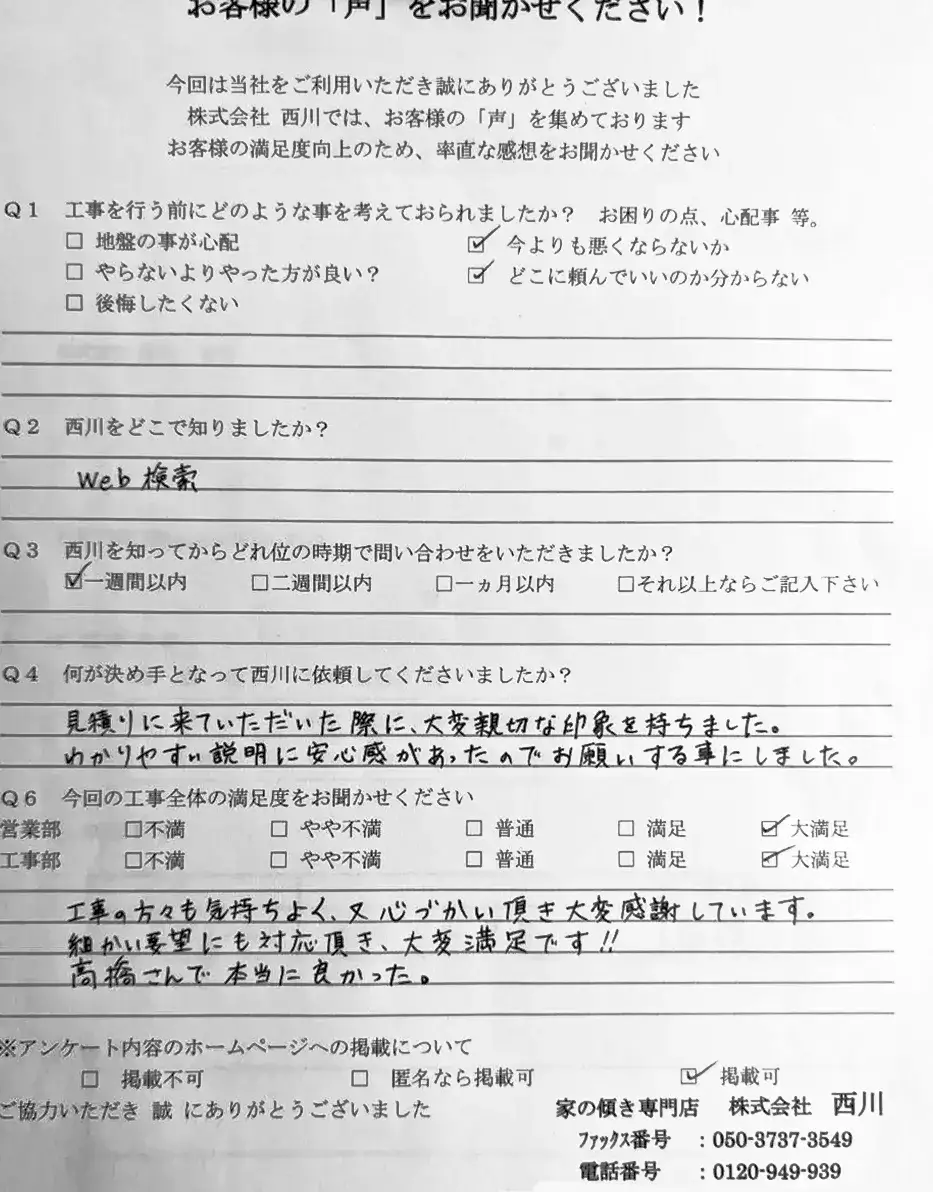 お客様の「声」をお聞かせください！
今回は当社をご利用いただき誠にありがとうございました
株式会社 西川では、お客様の「声」を集めております
お客様の満足度向上のため、率直な感想をお聞かせください
Q1 工事を行う前にどのような事を考えておられましたか？ お困りの点、心配事 等。
□ 地盤の事が心配 ☑ 今よりも悪くならないか
□ やらないよりやった方が良い？ ☑ どこに頼んでいいのか分からない
□ 後悔したくない
Q2 西川をどこで知りましたか？
Web 検索
Q3 西川を知ってからどれ位の時期で問い合わせをいただきましたか？
☑一週間以内 □二週間以内 □一ヵ月以内 □それ以上ならご記入下さい
Q4 何が決め手となって西川に依頼してくださいましたか？
見積りに来ていただいた際に、大変親切な印象を持ちました。
わかりやすい説明に安心感があったのでお願いする事にしました。
Q6 今回の工事全体の満足度をお聞かせください
営業部 □不満 □ やや不満 □ 普通 □ 満足 ☑ 大満足
工事部 □不満 □ やや不満 □ 普通 □ 満足 ☑ 大満足
工事の方々も気持ちよく、又心づかい頂き大変感謝しています。
細かい要望にも対応頂き、大変満足です!!
高橋さんで本当に良かった。
※アンケート内容のホームページへの掲載について
□ 掲載不可 □ 匿名なら掲載可 ☑ 掲載可
ご協力いただき 誠 にありがとうございました
家の傾き専門店 株式会社 西川
ファックス番号 ：050-3737-3549
電話番号 ：0120-949-939